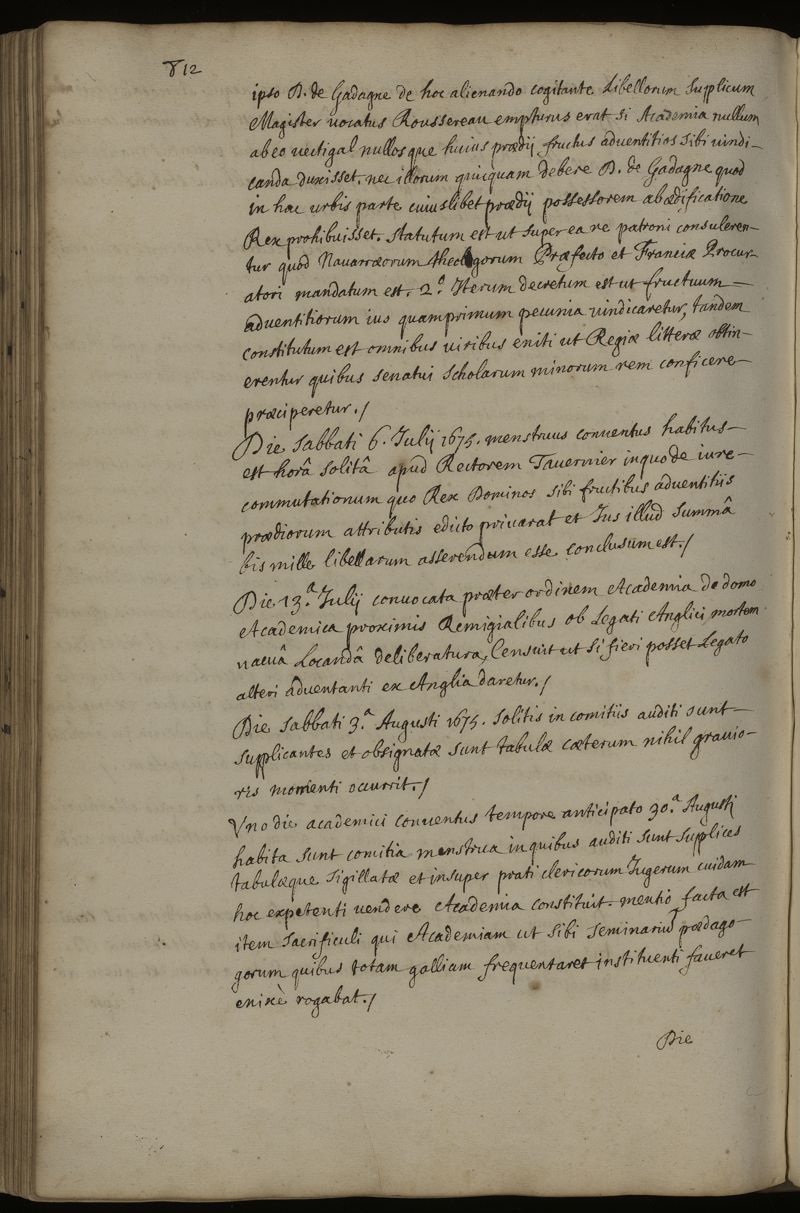 812
ipso D. de Gadagne de hoc alienando cogitante Libellorum Supplicum
Magister vocatus Roussereau empturus erat si Academia nullum
ab eo vectigal nullosque huius prædij fructus adventitios sibi vindi–
canda duxisset. nec illorum quicquam debere D. de Gadagne quod
in hac urbis parte cuiuslibet prædij possessorem ab ædificatione
Rex prohibuisset. Statutum est ut super ea re patroni consuleren–
tur quod Navarræorum theologorum Præfecto et Franciæ Procur–
atori mandatum est. 2.º Iterum decretum est ut fructuum –
adventitiorum ius quamprimum pecunia vindicaretur, tandem
constitutum est omnibus viribus eniti ut Regiæ litteræ obtin–
erentur quibus senatui Scholarum minorum rem conficere –
præciperetur./
Die Sabbati 6. Julij 1675. menstruus conventus habitus –
est horâ solitâ apud Rectorem Tavernier in quo de iure –
commutationum quo Rex Dominos sibi fructibus adventitiis
prædiorum attributis edicto privarat et Jus illud Summâ
bis mille libellarum asserendum esse conclusum est./
Die 13.ª Julij convocata præter ordinem Academia de domo
Academica proximis Remigialibus ob Legati Anglici mortem
vacuâ Locandâ deliberatura, Censuit ut si fieri posset Legato
alteri adventanti ex Anglia daretur./
Die Sabbati 3.ª Augusti 1675. Solitis in comitiis auditi sunt –
supplicantes et obsignatæ sunt tabulæ cæterum nihil gravio–
ris momenti occurrit./
Uno die academici conventus tempore anticipato 30.ª Augusti
habita sunt comitia menstrua in quibus auditi sunt supplices
tabulæque Sigillatæ et insuper prati clericorum Jugerum cuidam
hoc expetenti vendere Academia constituit. mentio facta est
item Sacrificuli qui Academiam ut sibi seminariū pædago–
gorum quibus totam galliam frequentaret instituenti faveret
enixè rogabat./
Die